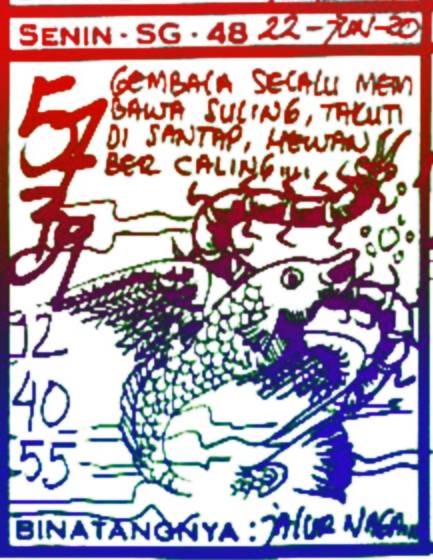 SENIN · SG · 48 22-JUN-20
GEMBALA SELALU MEM
BAWA SULING, TAKUT
DI SANTAP, HEWAN
BER CALING....
57
39
02
40
55
BINATANGNYA: JALUR NAGA